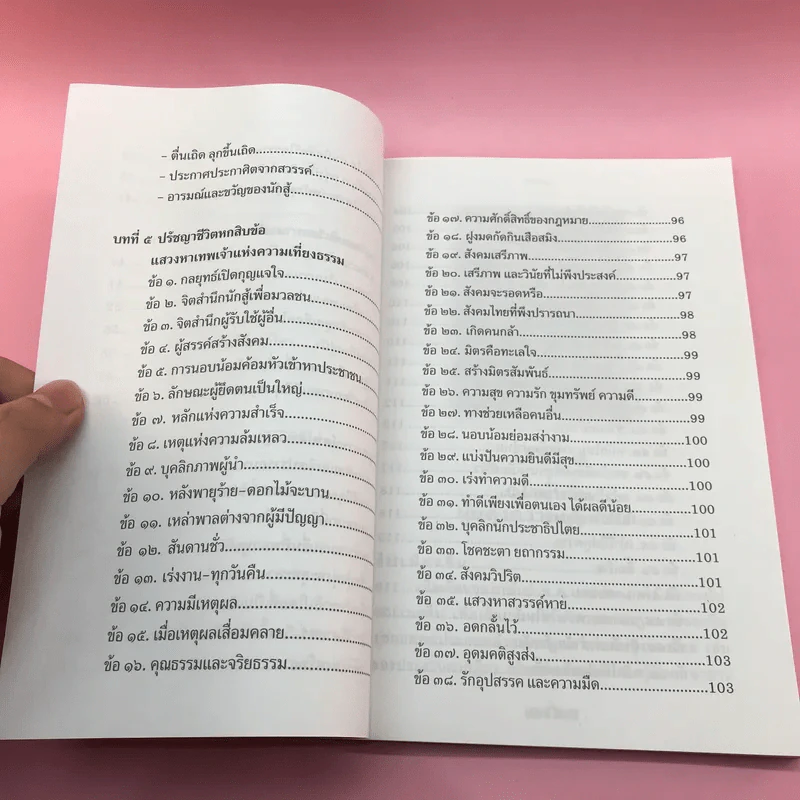 - ตื่นเถิด ลุกขึ้นเถิด..............................
- ประกาศประกาศิตจากสวรรค์..............
- อารมณ์และขวัญของนักสู้..................
บทที่ ๕ ปรัชญาชีวิตหกสิบข้อ
แสวงหาเทพเจ้าแห่งความเที่ยงธรรม
ข้อ ๑. กลยุทธ์เปิดกุญแจใจ..................
ข้อ ๒. จิตสำนึกนักสู้เพื่อมวลชน............
ข้อ ๓. จิตสำนึกผู้รับใช้ผู้อื่น..................
ข้อ ๔. ผู้สรรค์สร้างสังคม.....................
ข้อ ๕. การนอบน้อมค้อมหัวเข้าหาประชาชน
ข้อ ๖. ลักษณะผู้ยึดตนเป็นใหญ่............
ข้อ ๗. หลักแห่งความสำเร็จ..................
ข้อ ๘. เหตุแห่งความล้มเหลว...............
ข้อ ๙. บุคลิกภาพผู้นำ........................
ข้อ ๑๐. หลังพายุร้าย-ดอกไม้จะบาน......
ข้อ ๑๑. เหล่าพาลต่างจากผู้มีปัญญา......
ข้อ ๑๒. สันดานชั่ว..............................
ข้อ ๑๓. เร่งงาน-ทุกวันคืน.....................
ข้อ ๑๔. ความมีเหตุผล........................
ข้อ ๑๕. เมื่อเหตุผลเสื่อมคลาย..............
ข้อ ๑๖. คุณธรรมและจริยธรรม..............
ข้อ ๑๗. ความศักดิ์สิทธิ์ของกฎหมาย..................96
ข้อ ๑๘. ฝูงมดกัดกินเสือสมิง..................96
ข้อ ๑๙. สังคมเสรีภาพ..................97
ข้อ ๒๐. เสรีภาพ และวินัยที่ไม่พึงประสงค์..................97
ข้อ ๒๑. สังคมจะรอดหรือ..................97
ข้อ ๒๒. สังคมไทยที่พึงปรารถนา..................98
ข้อ ๒๓. เกิดคนกล้า..................98
ข้อ ๒๔. มิตรคือทะเลใจ..................99
ข้อ ๒๕. สร้างมิตรสัมพันธ์..................99
ข้อ ๒๖. ความสุข ความรัก ขุมทรัพย์ ความดี..................99
ข้อ ๒๗. ทางช่วยเหลือคนอื่น..................99
ข้อ ๒๘. นอบน้อมย่อมสง่างาม..................100
ข้อ ๒๙. แบ่งปันความยินดีมีสุข..................100
ข้อ ๓๐. เร่งทำความดี..................100
ข้อ ๓๑. ทำดีเพียงเพื่อตนเอง ได้ผลดีน้อย..................100
ข้อ ๓๒. บุคลิกนักประชาธิปไตย..................101
ข้อ ๓๓. โชคชะตา ยถากรรม..................101
ข้อ ๓๔. สังคมวิปริต..................101
ข้อ ๓๕. แสวงหาสวรรค์หาย..................102
ข้อ ๓๖. อดกลั้นไว้..................102
ข้อ ๓๗. อุดมคติสูงส่ง..................103
ข้อ ๓๘. รักอุปสรรค และความมืด..................103